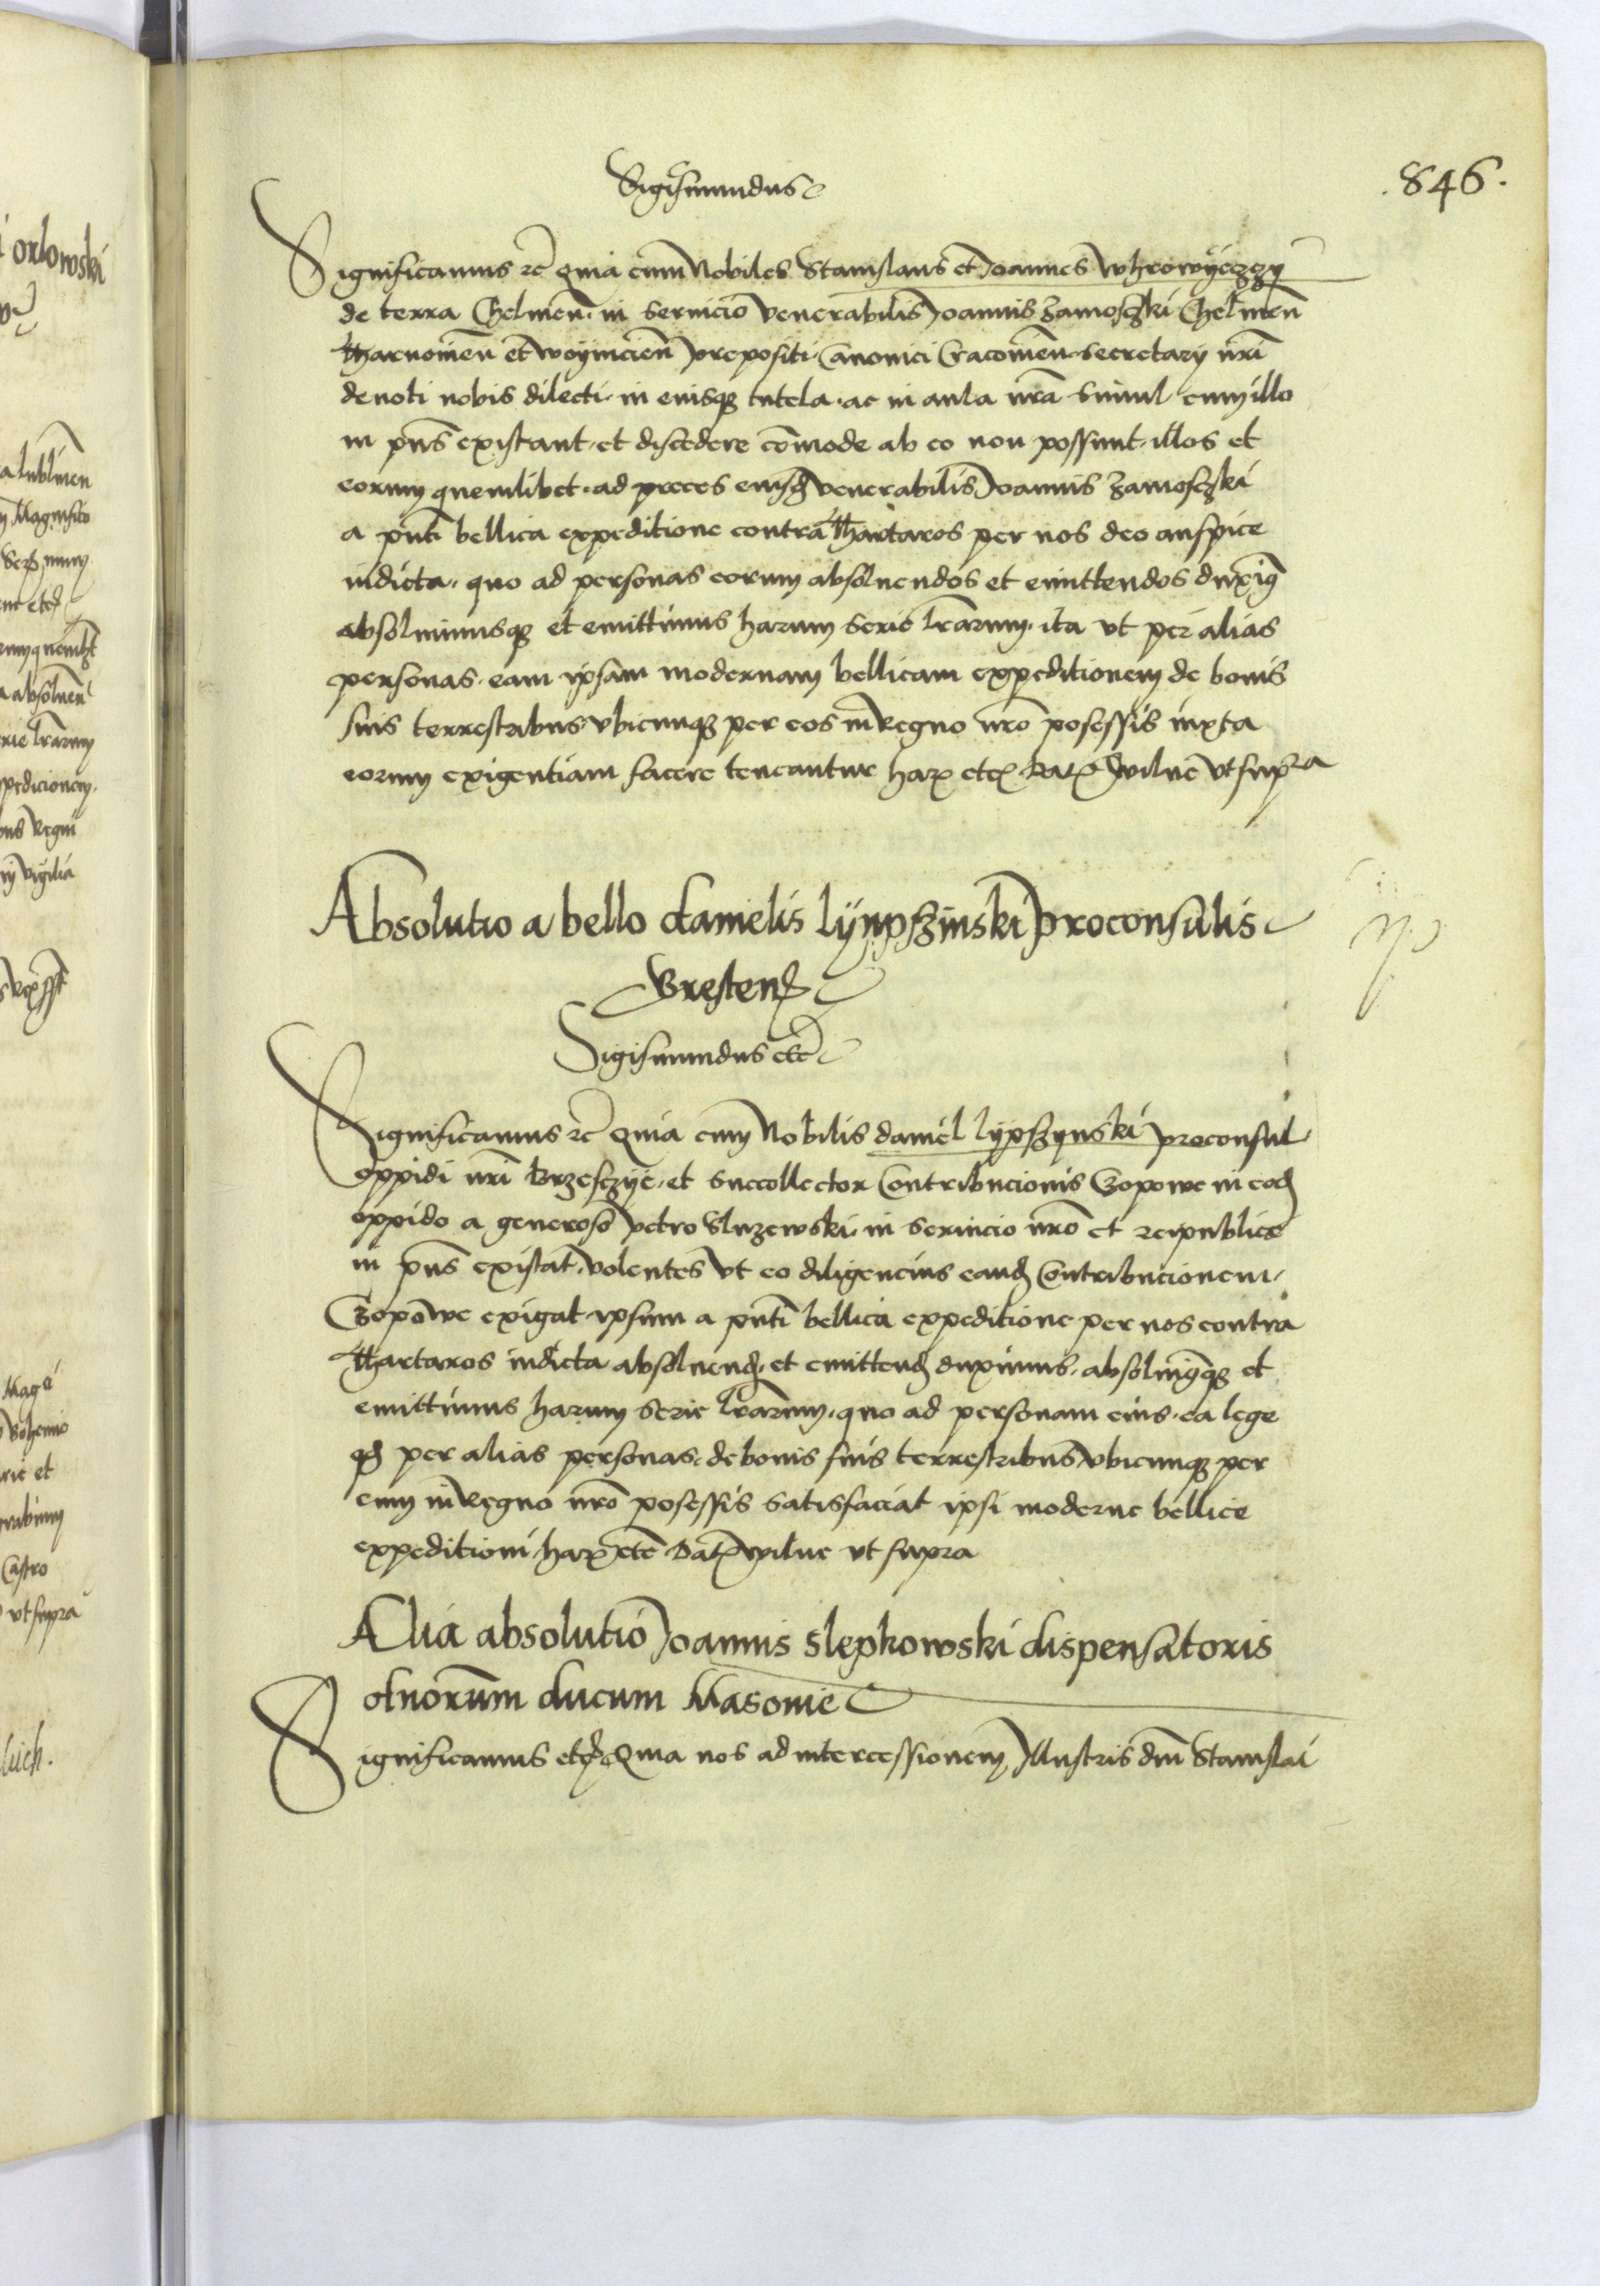 .846.
Sigismundus
Significamus etc Quia cum Nobiles Stanislaus et Joannes Uhrowyeczzy
de terra Chelmen. in servicio venerabilis Joannis Zamoschki Chelmen
Tharnovien et woyniczien prepositi Canonici Cracovien. Secretarij nri
devoti nobis dilecti. in eiusq tutela. ac in aula nra simul cum illo
in pns existant. et discedere comode ab eo non possunt. illos et
eorum quemlibet. ad preces eiusd venerabilis Joannis Zamoschki
a pnti bellica expeditione contra Thartaros per nos deo auspice
indicta. quo ad personas eorum absolvendos et emittendos duxim9
absolvimusq et emittimus harum serie lrarum. ita ut per alias
personas. eam ipsam modernam bellicam expeditionem de bonis
suis terrestribus ubicunq per eos in Regno nro posessis iuxta
eorum exigentiam facere teneantur har etc Dat wilne ut supra
Absolutio a bello danielis lynpszinski proconsulis
Bresten
Sigismundus etc
Significamus etc Quia cum Nobilis daniel lypszynski proconsul
oppidi nri Brzesczye. et succollector Contribucionis Czopowe in eod
oppido a generoso petro Sluzewski. in servicio nro et reipublice
in pns existat. volentes ut eo diligencius eand Contribucionem.
Czopowe exigat. ipsum a pnti bellica expeditione per nos contra
Thartaros indicta absolvend. et emittend duximus. absolvim9q et
emittimus harum serie lrarum. quo ad personam eius. ea lege
qd per alias personas. de bonis suis terrestribus ubicunq per
eum in Regno nro posessis satisfaciat ipsi moderne bellice
expeditioni. har etc Dat wilne ut supra
Alia absolutio Joannis slepkowski dispensatoris
olnorum ducum Masovie
Significamus etc Quia nos ad intercessionem Illustris dni Stanislai